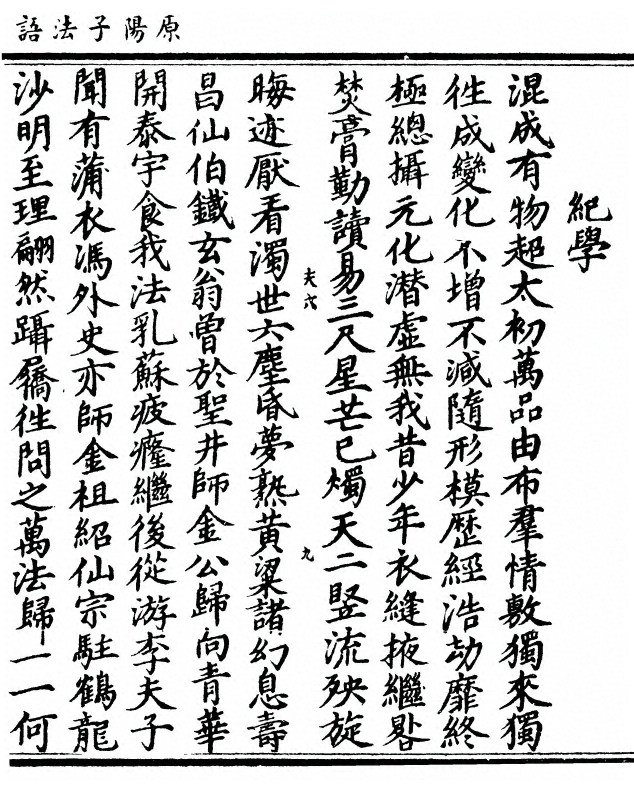 原陽子法語
紀學
混成有物超太初萬品由布羣情敷獨來獨
徃成變化不增不減隨形模歷經浩劫靡終
極總攝元化潛虛無我昔少年衣縫掖繼晷
焚膏勤讀易三尺星芒已燭天二竪流殃旋
夫六
九
晦迹厭看濁世六塵昏夢熟黃粱諸幻息壽
昌仙伯鐵玄翁曾於聖井師金公歸向青華
開泰宇食我法乳蘇疲癃繼後從游李夫子
聞有蒲衣馮外史亦師金祖紹仙宗駐鶴龍
沙明至理翩然躡屩徃問之萬法歸一一何